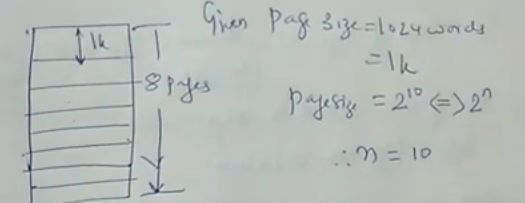 1k
8 pages
Given Page Size=1024 words
=1k
pagesize = 2^10 <=> 2^n
∴ n = 10